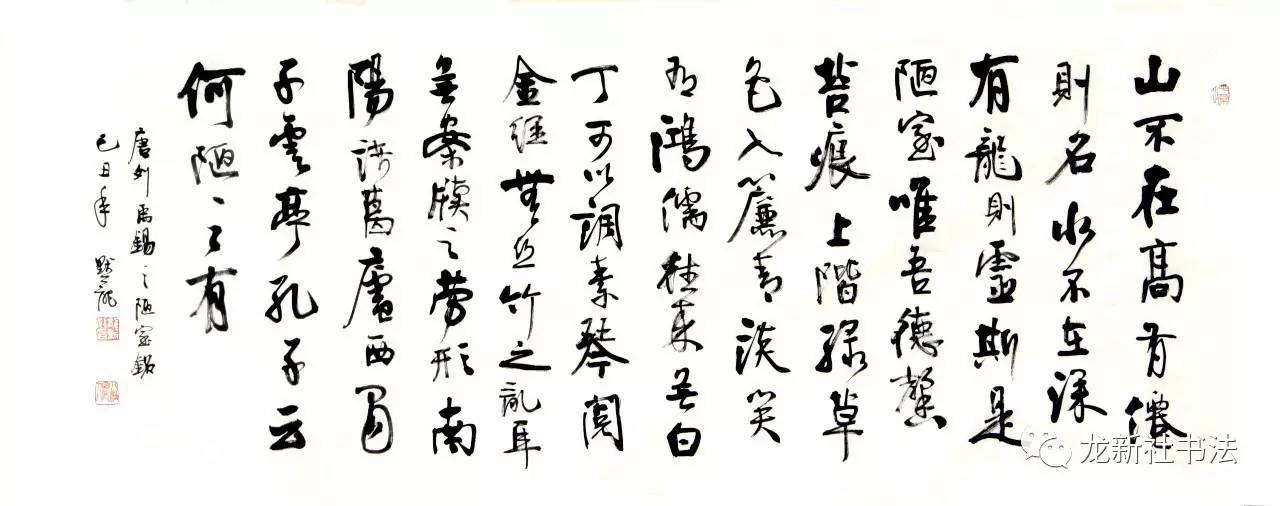 山不在高有僊
則名水不在深
有龍則靈斯是
陋室唯吾德馨
苔痕上階綠草
色入簾青談笑
有鴻儒往來无白
丁可以調素琴閱
金經無丝竹之亂耳
无案牘之勞形南
陽諸葛廬西蜀
子雲亭孔子云
何陋之有
唐刘禹錫之陋室銘
己丑年 默龍
龙新社书法